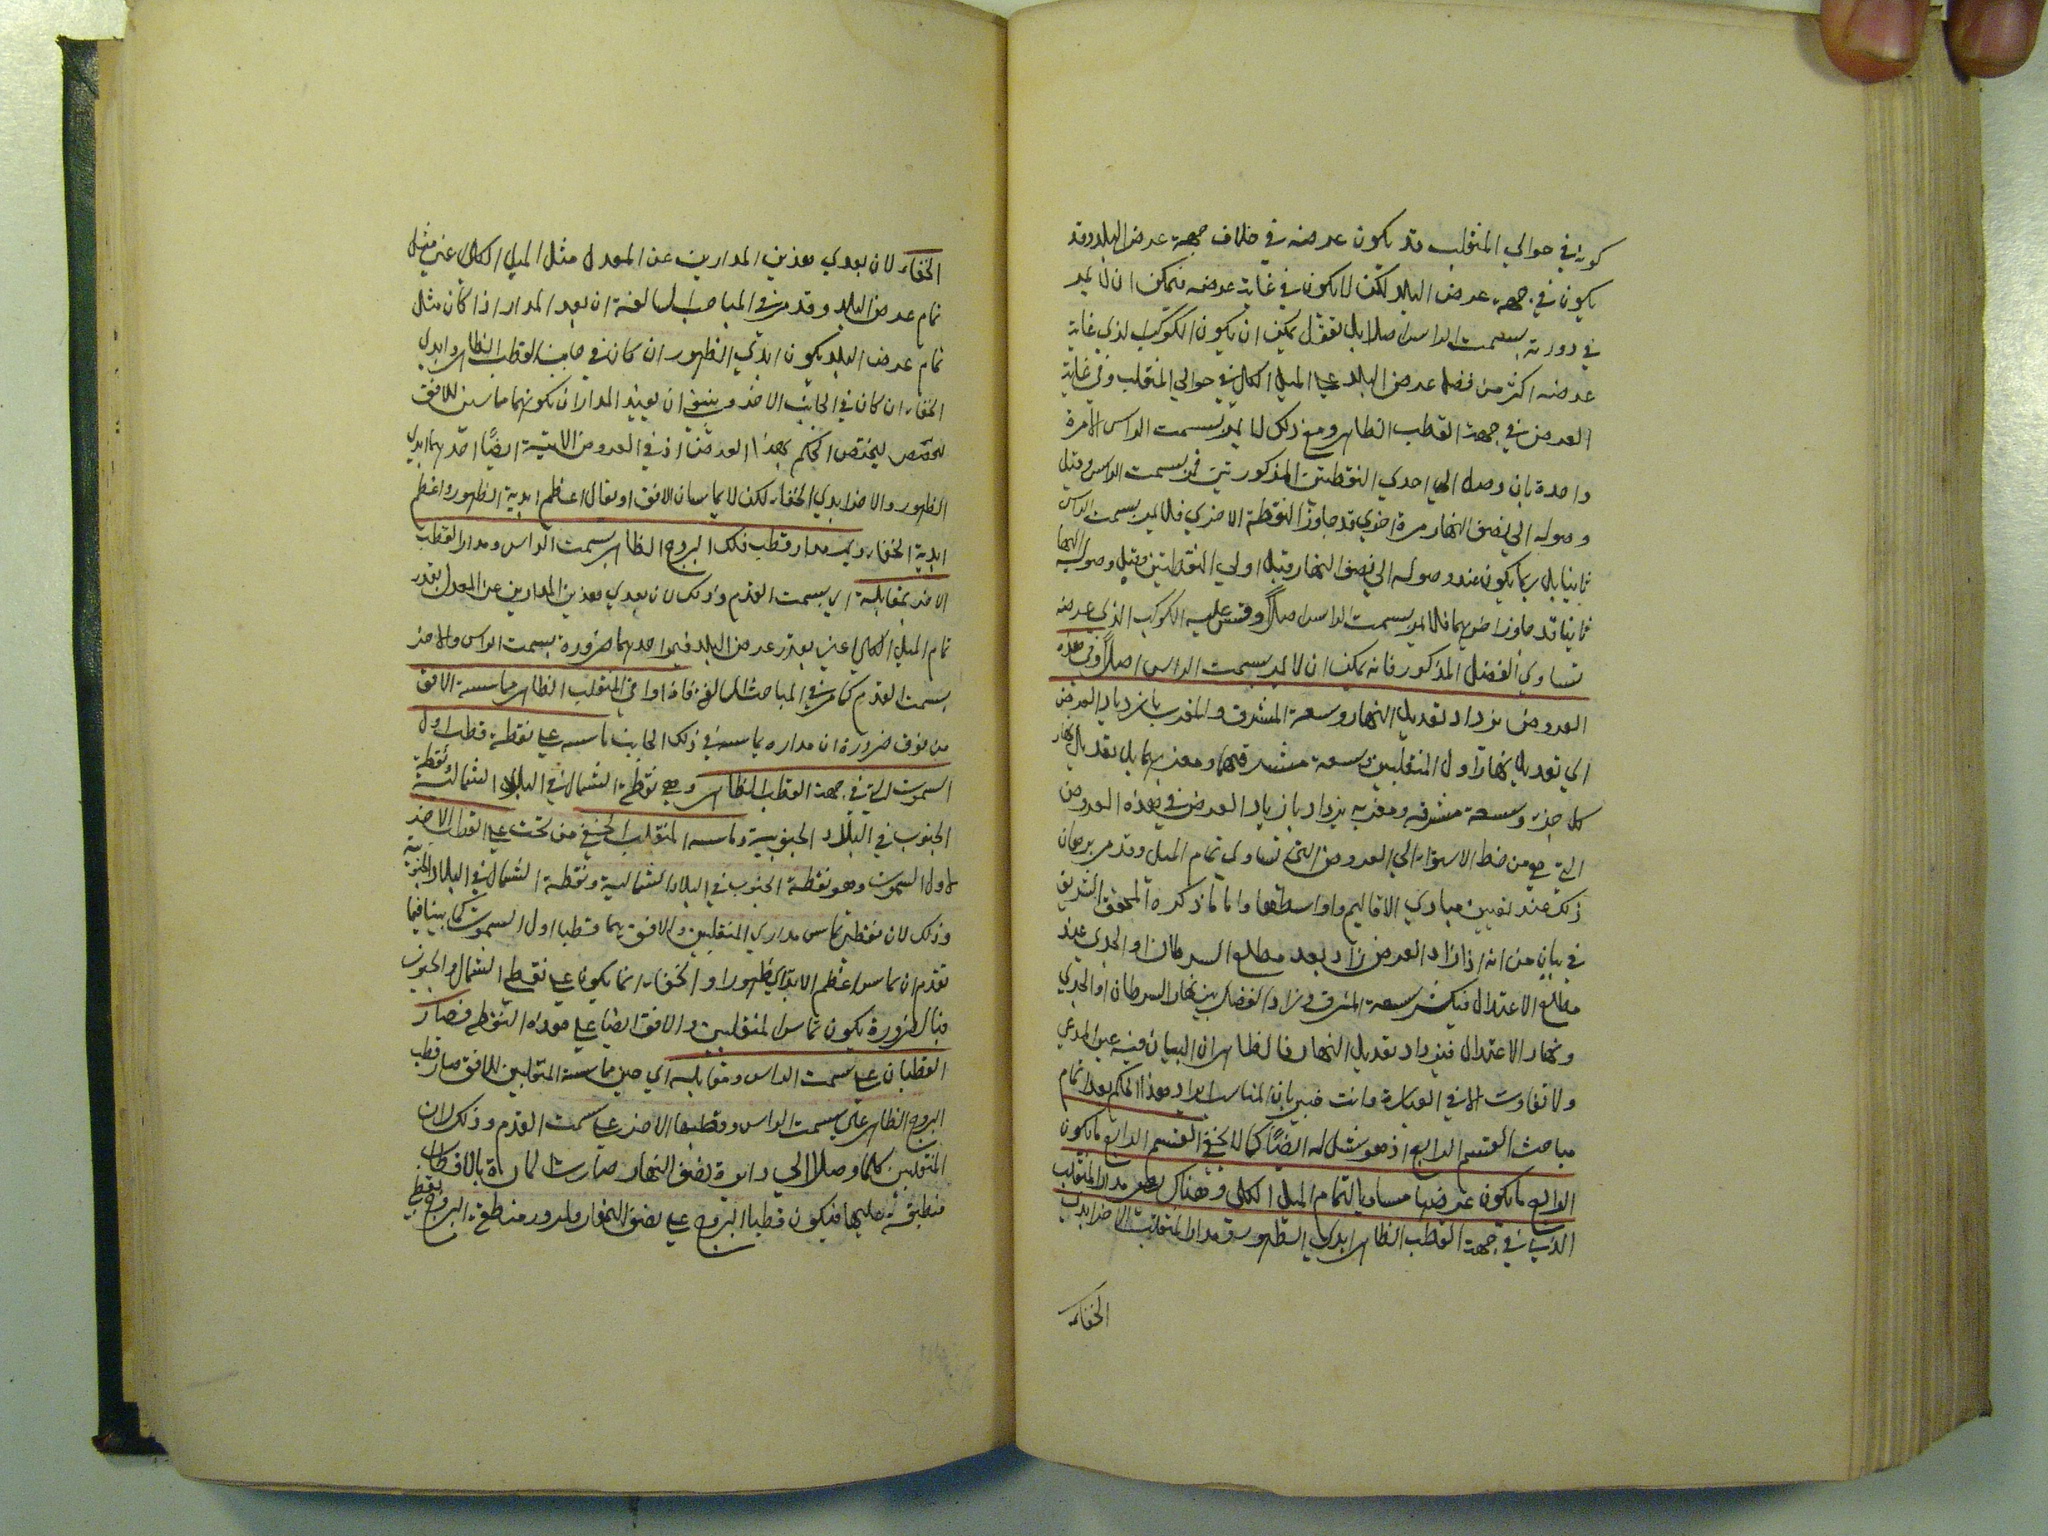 كونه في حوالي المنقلب قد يكون عرضه في خلاف جهة عرض البلد وقد
يكون في جهة عرض البلد لكن لا يكون في غاية عرضه فيمكن ان لا يمر
في دورته بسمت الراس اصلا بل نقول يمكن ان يكون الكوكب الذي غاية
عرضه اكثر من فضل عرض البلد على الميل الكلي في حوالي المنقلب وفي غاية
العرض في جهة القطب الظاهر ومع ذلك لا يمر بسمت الراس الا مرة
واحدة بان وصل الي احدي النقطتين المذكورتين فمر بسمت الراس وقبل
وصوله الي نصف النهار مرة اخري قد جاوز النقطة الاخري فلا يمر بسمت الراس
ثانيا بل ربما يكون عند وصوله الي نصف النهار قبل اولي النقطتين وقبل وصوله النهار
ثانيا قد جاوز اخريهما فلا يمر بسمت الراس اصلاً وقس عليه الكوكب الذي عرضه
تساوي الفضل المذكور فانه يمكن ان لا يمر بسمت الراس اصلاً وفي هذه
العروض يزداد تعديل النهار وسعة المشرق والمغرب بازدياد العرض
اي تعديل نهار اول المنقلبين وسعة مشرقهما ومغربهما بل تعديل نهار
كل جزء وسعة مشرقه ومغربه يزداد بازدياد العرض في هذه العروض
التي هي من خط الاستواء الي العروض التي تساوي تمام الميل وقد مر برهان
ذلك عند تعيين مبادي الاقاليم واواسطها واما ما ذكره المحقق الشريف
في بيانه من انه اذا زاد العرض زاد بعد مطلع السرطان او الجدي عند
مطلع الاعتدال فيكثر سعة المشرق وزاد الفضل بين نهار السرطان او الجدي
ونهار الاعتدال فيزداد تعديل النهار فالظاهر ان البيان فيه عين المدعي
ولا تفاوت الا في العبارة وانت خبير بان المناسب ايراد هذا الحكم بعد تمام
مباحث القسم الرابع اذ هو شامل له ايضاً كما لا يخفي القسم الرابع ما يكون
الرابع ما يكون عرضها مساويا لتمام الميل الكلي وهناك يصير مدار المنقلب
الذي في جهة القطب الظاهر ابدي الظهور ومدار المنقلب الاخر ابدي
الخفاء
الخفاء لان بعدي هذين المدارين عن المعدل مثل الميل الكلي اعني مثل
تمام عرض البلد وقد مر في المباحث السالفة ان بعد المدار اذا كان مثل
تمام عرض البلد يكون ابدي الظهور ان كان في جانب القطب الظاهر وابدي
الخفاء ان كان في الجانب الاخر وينبغي ان يقيد المداران بكونهما مماسين للافق
ليختص الحكم بهذا العرض اذ في العروض الاتية ايضاً احدهما ابدي
الظهور والاخر ابدي الخفاء لكن لا يماسان الافق او يقال اعظم ابدية الظهور واعظم
ابدية الخفاء ويمر مدار قطب فلك البروج الظاهر بسمت الراس ومدار القطب
الاخر بمقابله اي بسمت القدم وذلك لان بعدي هذين المدارين عن المعدل بقدر
تمام الميل الكلي اعني بقدر عرض البلد فيمر احدهما ضرورة بسمت الراس والاخر
بسمت القدم كما مر في المباحث السالفة فاذا وافي المنقلب الظاهر مماسة الافق
من فوق ضرورة ان مداره يماسه في ذلك الجانب ماسه على نقطة قطب اول
السموت التي في جهة القطب الظاهر وهي نقطة الشمال في البلاد الشمالية ونقطة
الجنوب في البلاد الجنوبية وماسه المنقلب الخفي من تحت على القطب الاخر
لاول السموت وهو نقطة الجنوب في البلاد الشمالية ونقطة الشمال في البلاد الجنوبية
وذلك لان نقطتي تماس مداري المنقلبين والافق هما قطبا اول السموت كما بينا فيما
تقدم ان تماس اعظم الابدي الظهور او الخفاء انما يكون على نقطتي الشمال والجنوب
فبالضرورة يكون تماس المنقلبين والافق ايضا على هذه النقط فصار
القطبان على سمت الراس ومقابله اي حين مماسة المنقلبين للافق صار قطب
البروج الظاهر على سمت الراس وقطبها الاخر على سمت القدم وذلك لان
المنقلبين كلما وصلا الي دائرة نصف النهار صارت المارة بالاقطاب
منطبقة عليها فيكون قطبا البروج على نصف النهار ولمرور منطقة البروج بقطبي